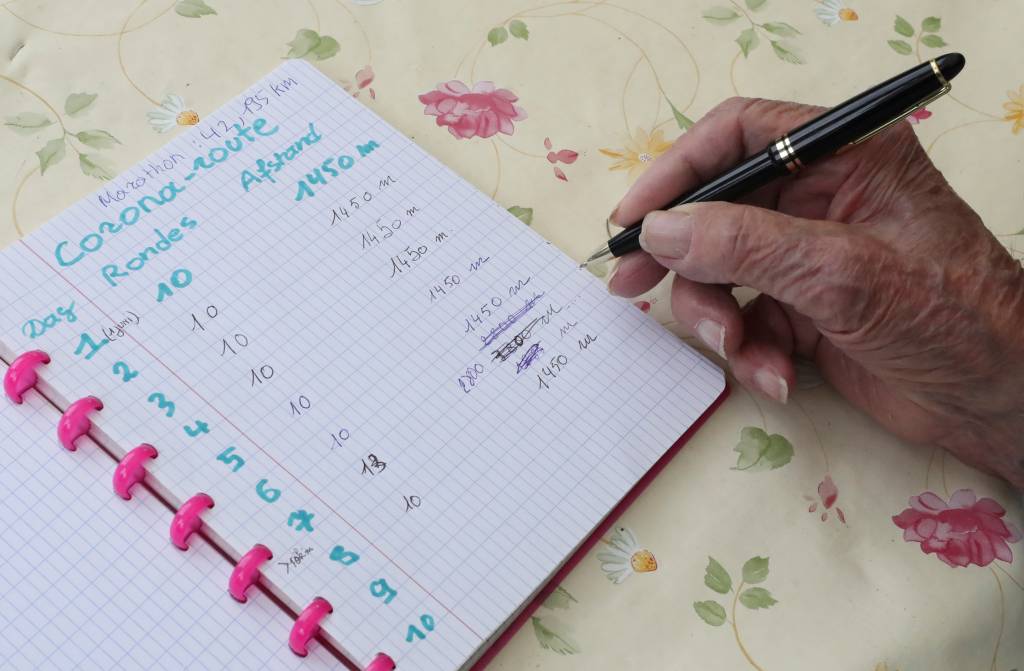 Marathon : 42,195 km
Corona-route
Dag Rondes Afstand
1 (1 juni) 10 1450 m
2 10 1450 m
3 10 1450 m
4 10 1450 m.
5 10 1450 m
6 10 1450 m
7 13 m
8 10 1450 m
9
10